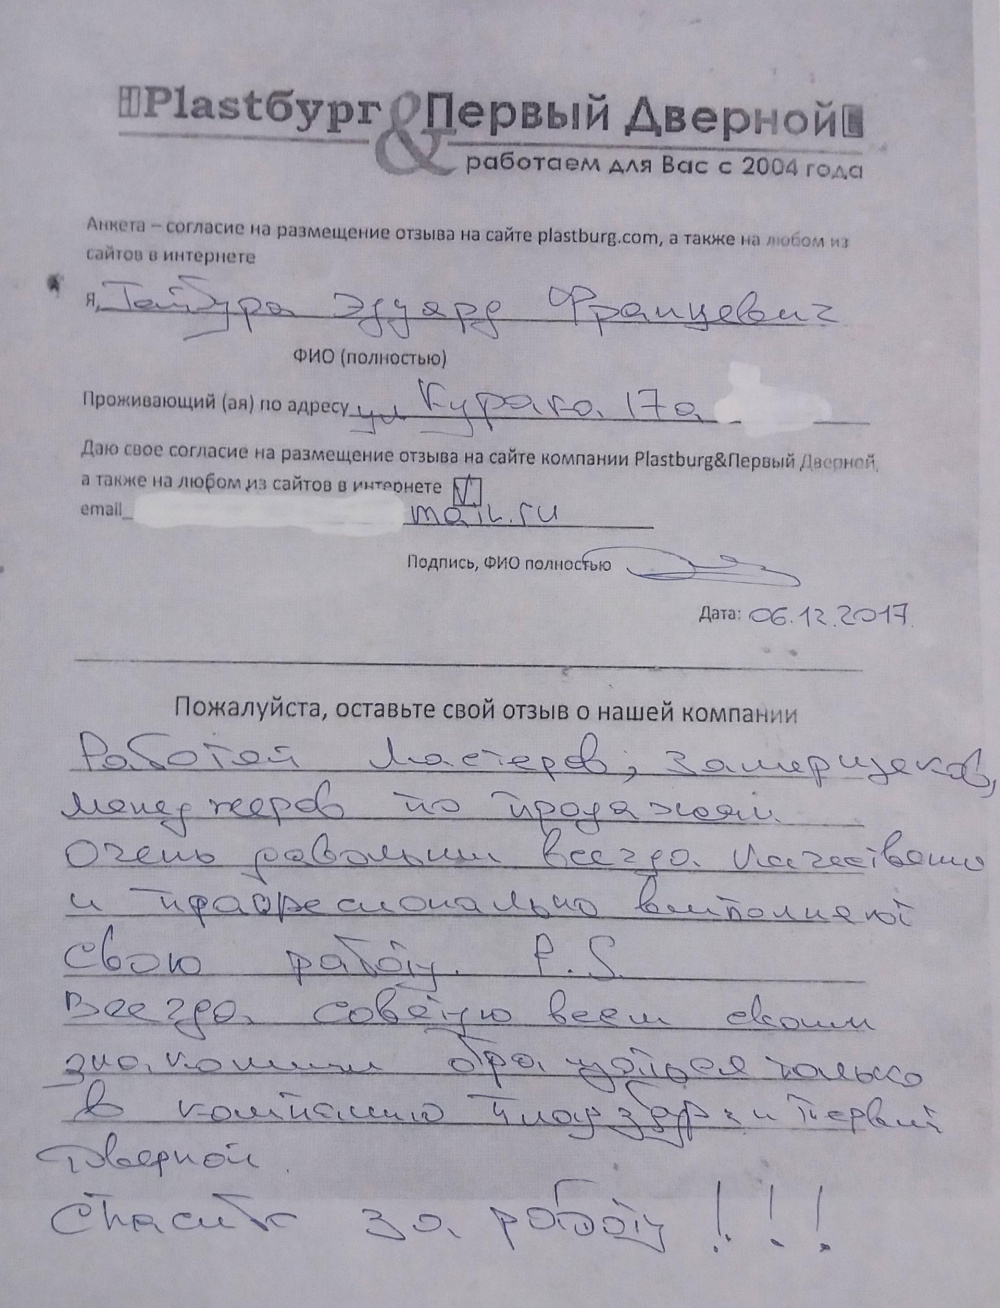 Plastбург & Первый Дверной
работаем для Вас с 2004 года
Анкета – согласие на размещение отзыва на сайте plastburg.com, а также на любом из
сайтов в интернете
Я, Эдуард Францевич
ФИО (полностью)
Проживающий (ая) по адресу ул Курако 17а
Даю свое согласие на размещение отзыва на сайте компании Plastburg&Первый Дверной,
а также на любом из сайтов в интернете
email mail.ru
Подпись, ФИО полностью
Дата: 06.12.2017
Пожалуйста, оставьте свой отзыв о нашей компании
Работой мастеров, замерщиков,
менеджеров по продажам.
Очень довольны всегда. Качественно
и професионально выполняют
свою работу. P.S.
Всегда советую всем своим
знакомым обращаться только
в компанию и Первый
Дверной.
Спасибо за работу!!!